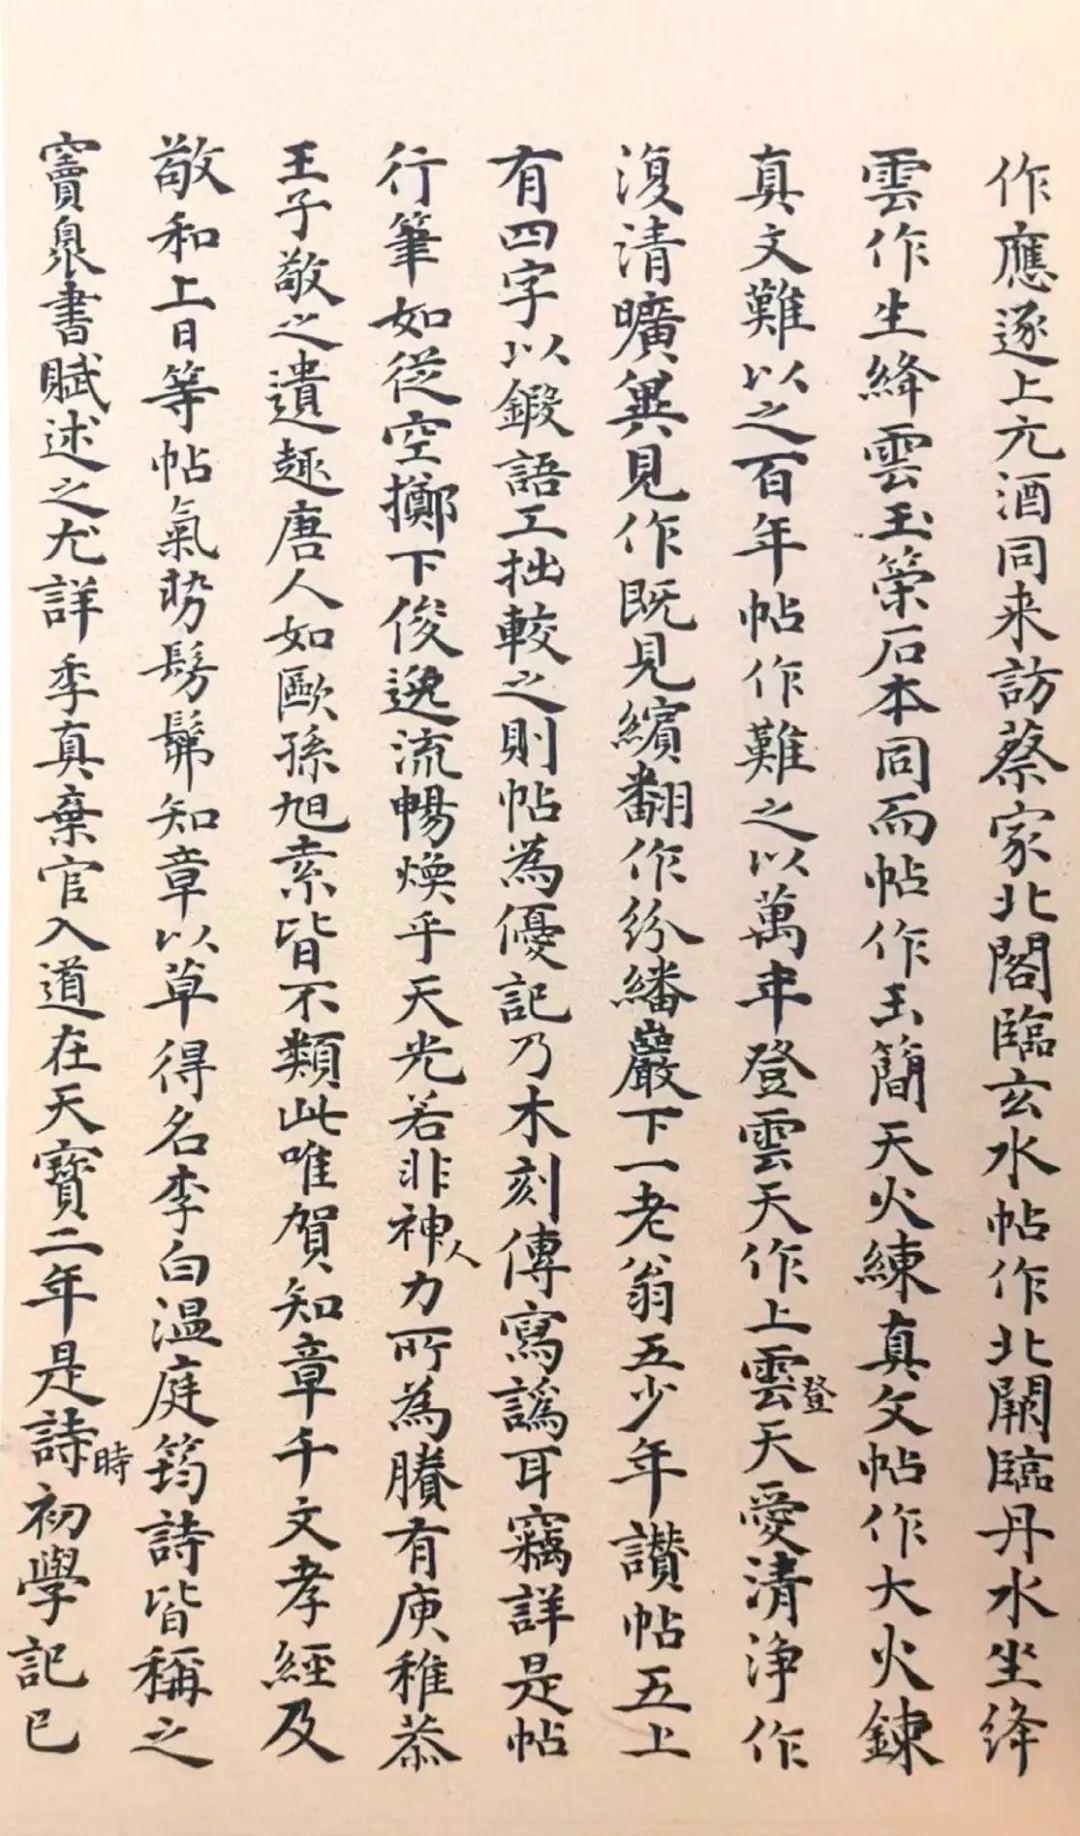 作應逐上元酒同来訪蔡家北閣臨玄水帖作北闕臨丹水坐絳
雲作生絳雲玉䇿石本同而帖作玉簡天火練真文帖作大火鍊
真文難以之百年帖作難之以萬年登雲天作上雲登天愛清淨作
復清曠異見作既見繽翻作紛繙巖下一老翁五少年讚帖五上
有四字以鍛語工拙較之則帖為優記乃木刻傳寫譌耳竊詳是帖
行筆如從空擲下俊逸流暢煥乎天光若非神人力所為賸有庾稚恭
王子敬之遺趣唐人如歐孫旭素皆不類此唯賀知章千文孝經及
敬和上日等帖氣勢髣髴知章以草得名李白温庭筠詩皆稱之
竇泉書賦述之尤詳季真棄官入道在天寶二年是詩時初學記已